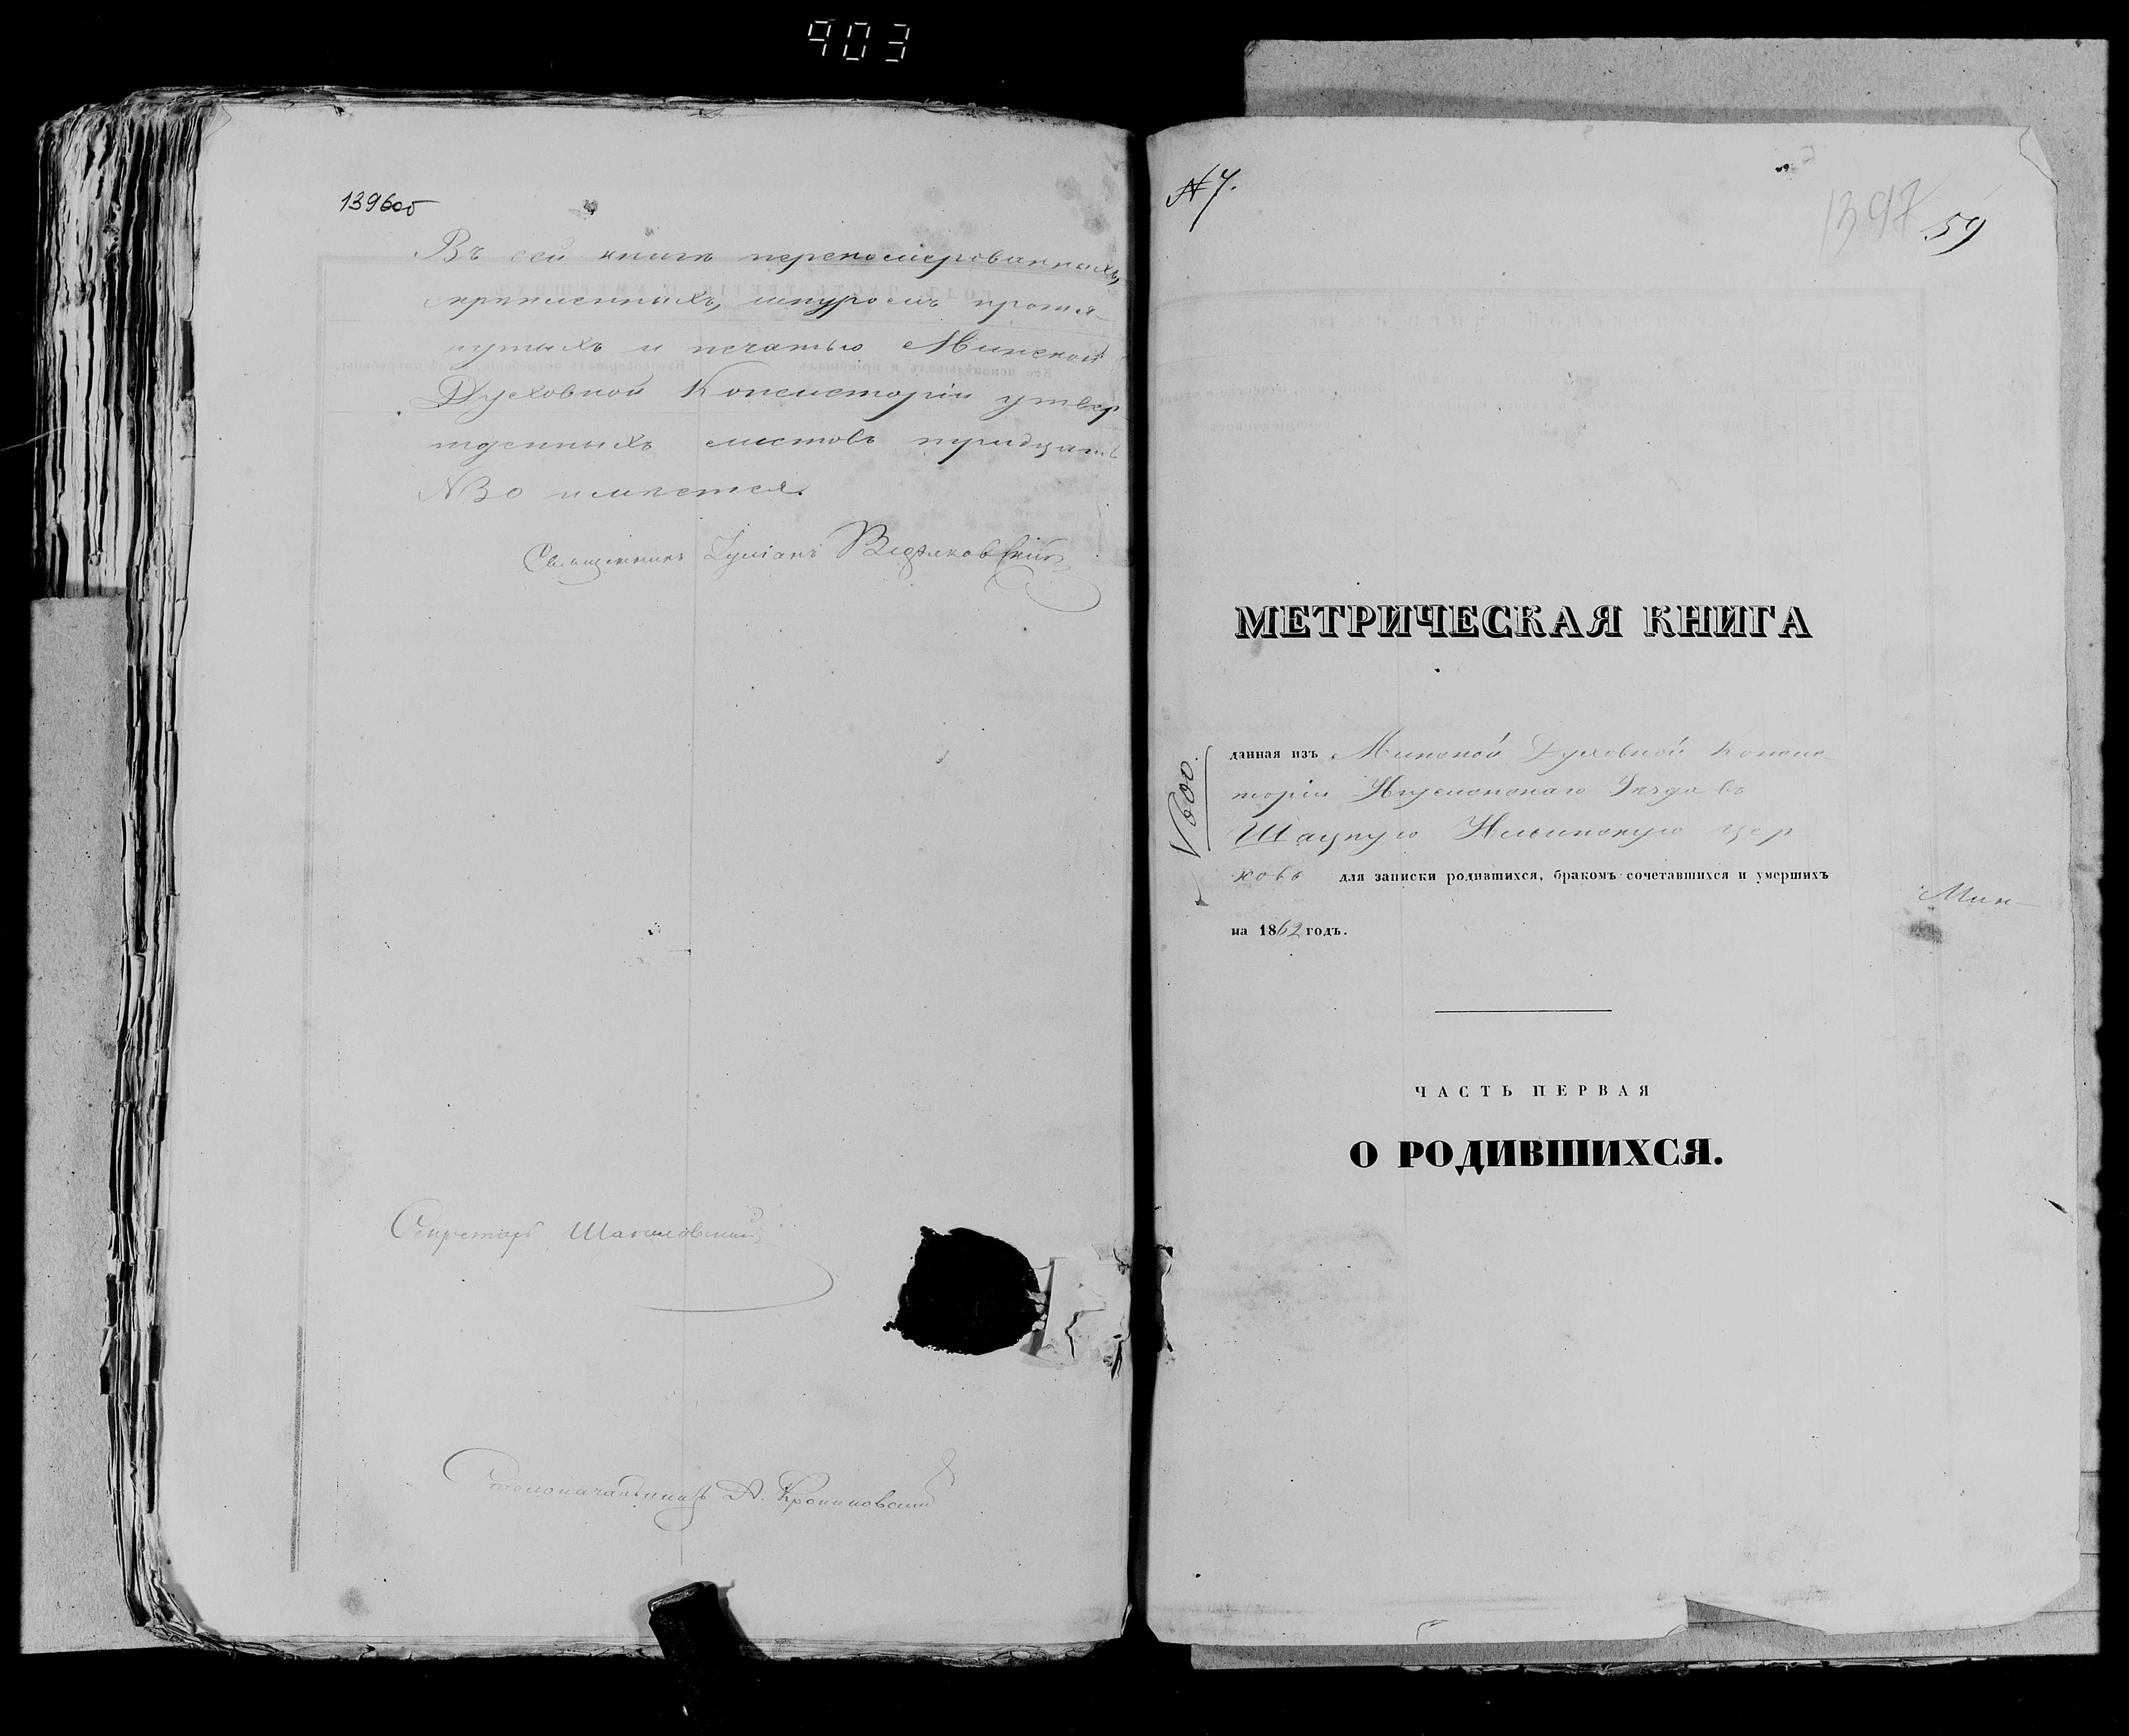 903
1396об
Въ сей книгѣ переномерованныхъ,
скрѣпленныхъ, шнуромъ протя-
нутыхъ и печатью Минской
Духовной Консисторіи утвер-
жденныхъ листовъ тридцать
№30 имѣется.
Священникъ Іуліанъ
Секретарь
Столоначальникъ А.
№7.
1397
59
МЕТРИЧЕСКАЯ КНИГА
данная изъ Минской Духовной Консис-
торіи Игуменскаго Уѣзда въ
Шацкую Ильинскую цер
ковь для записки родившихся, бракомъ сочетавшихся и умершихъ
на 1862 годъ.
Мин-
ЧАСТЬ ПЕРВАЯ
О РОДИВШИХСЯ.